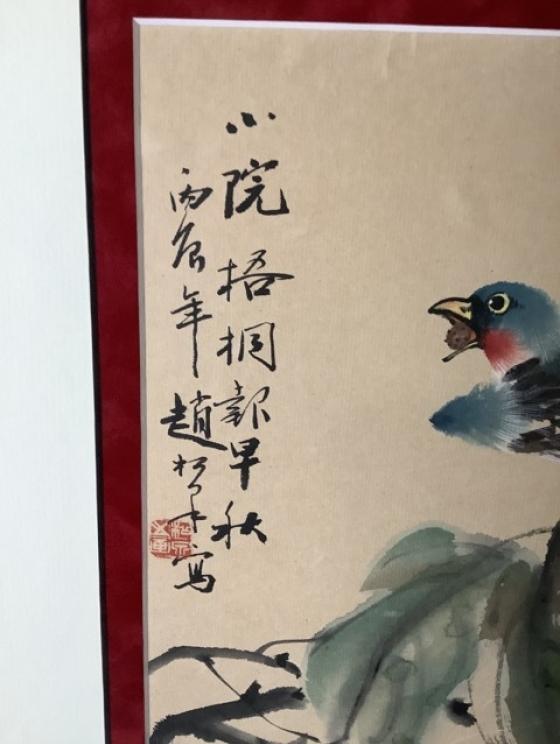 小院梧桐報早秋
丙辰年趙松泉寫